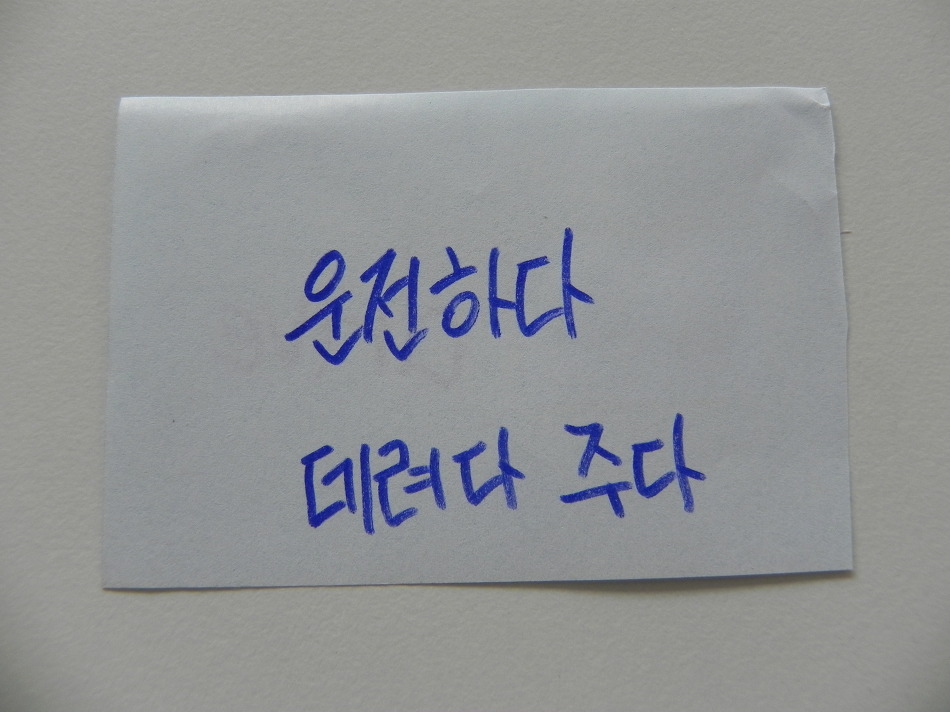 운전하다
데려다 주다